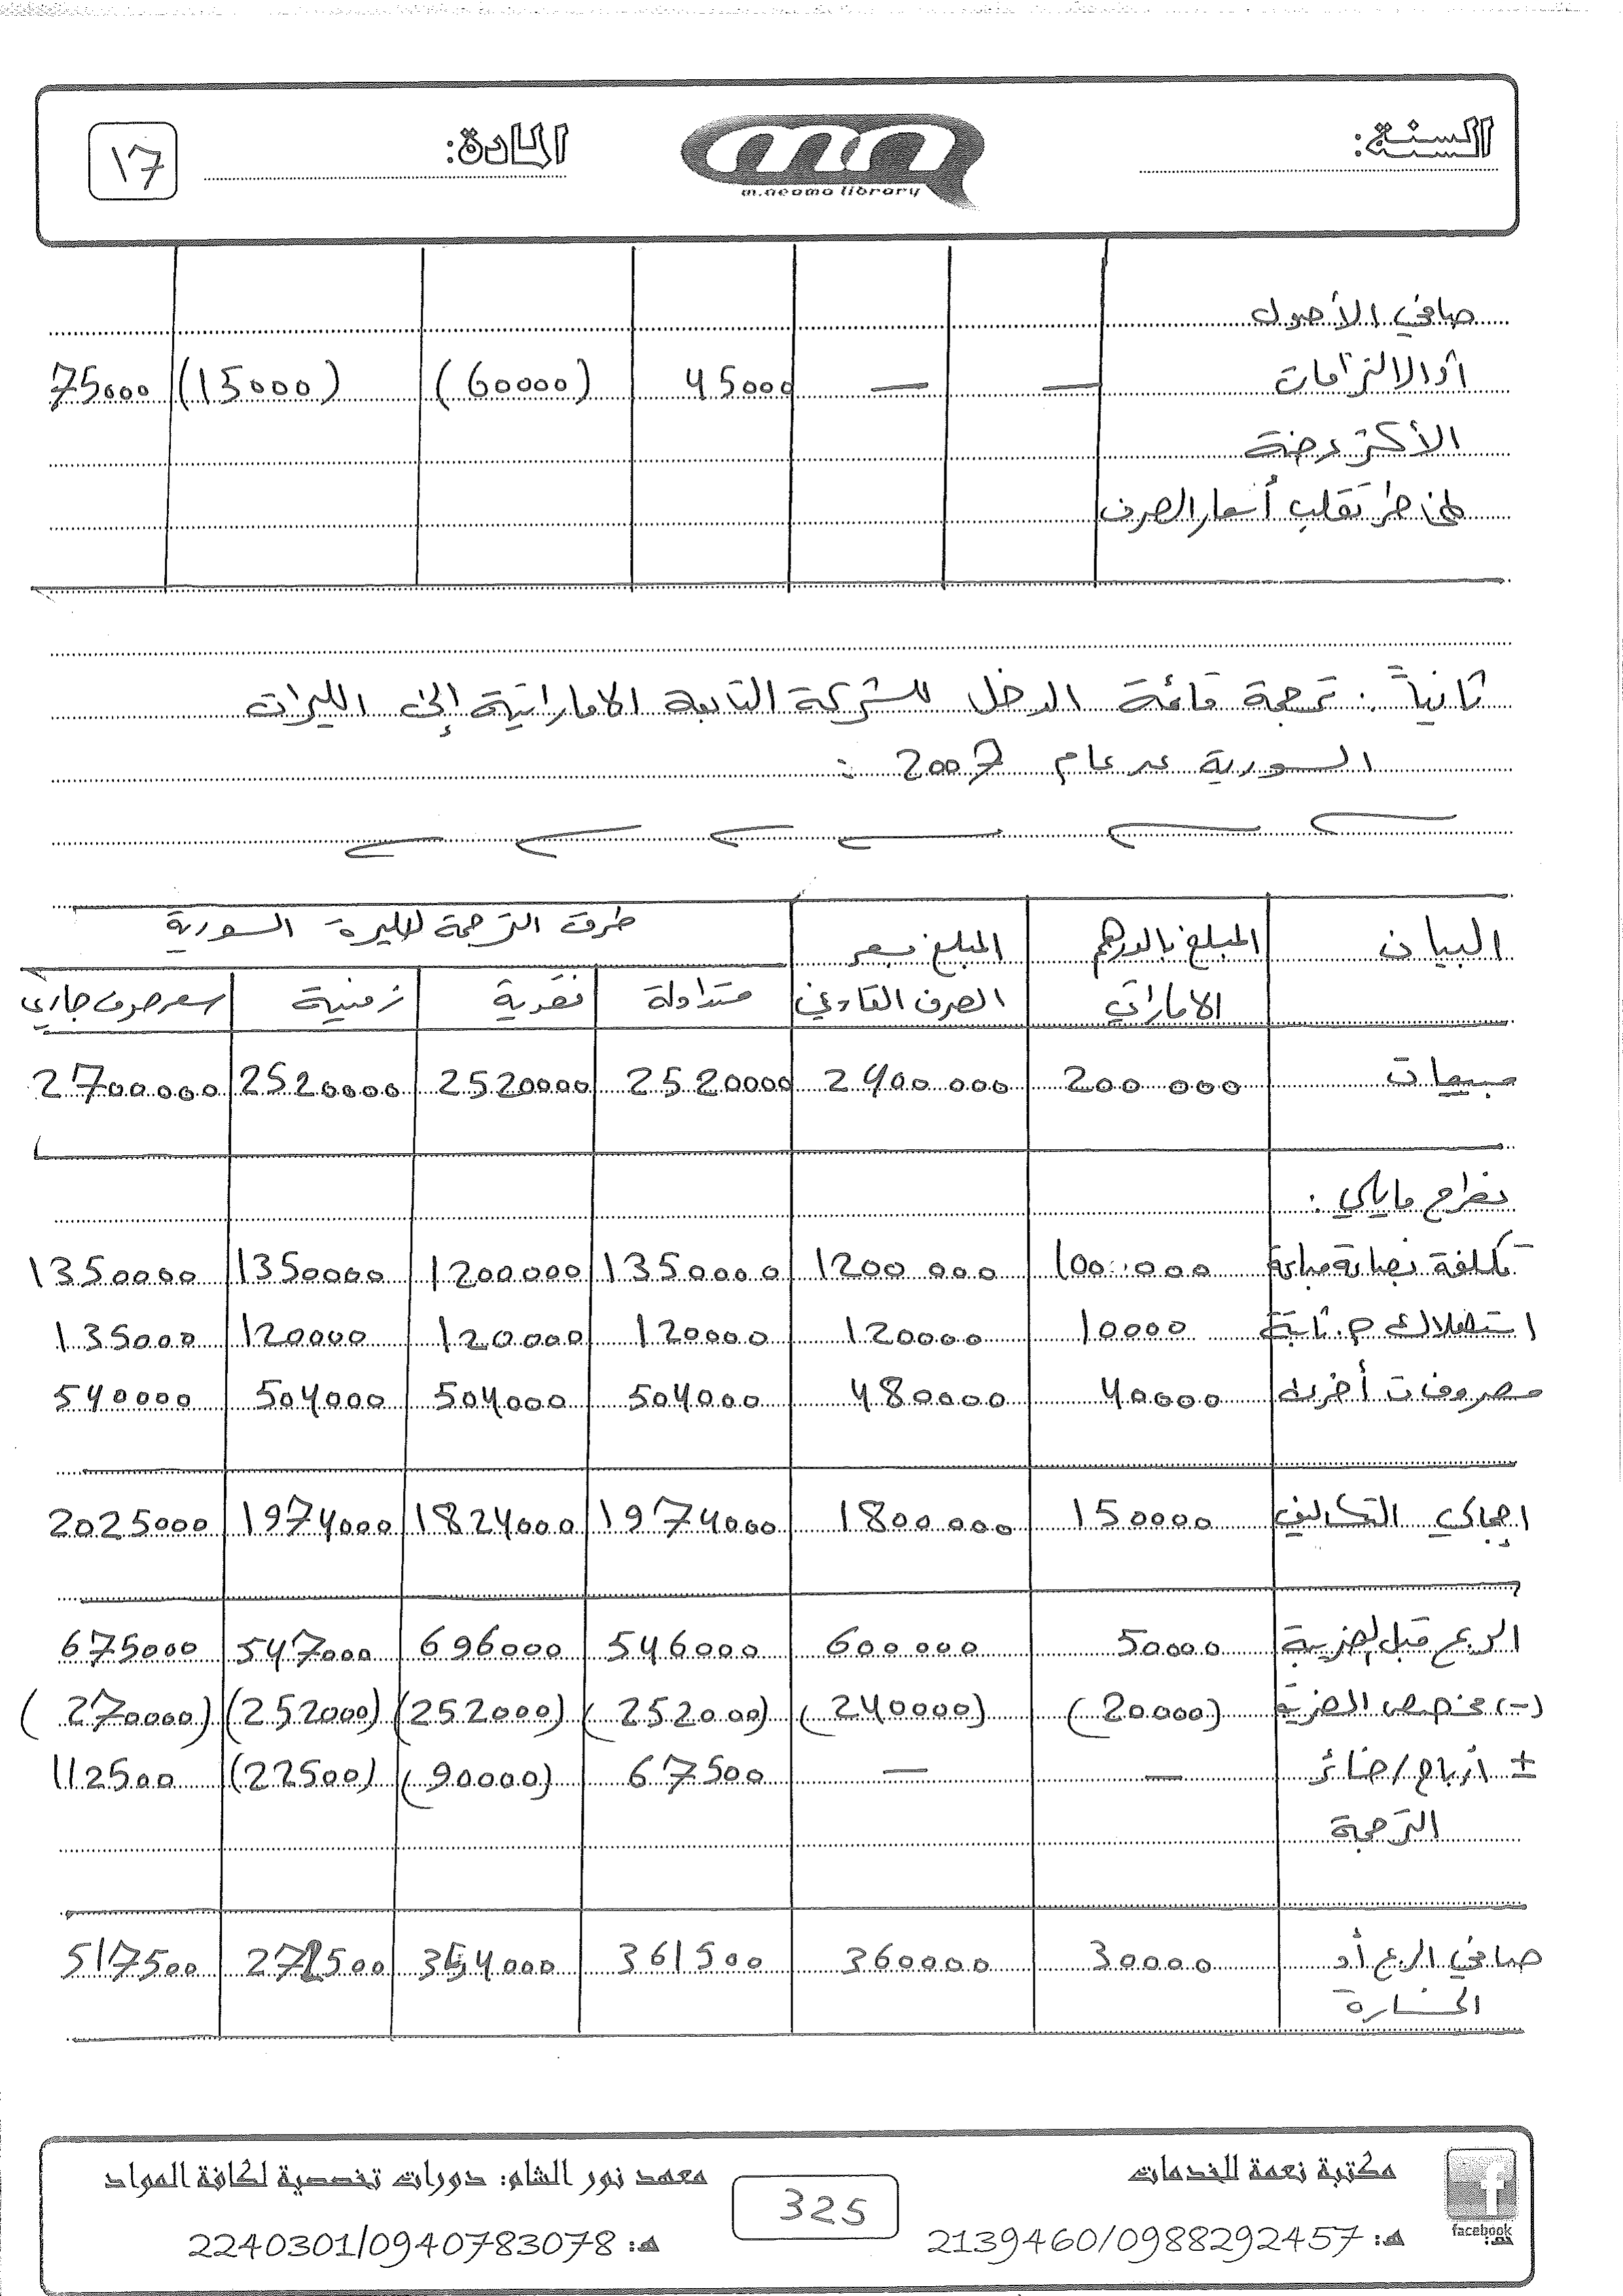 السنة:
m.neama library
المادة:
١٧
صافي الأصول
أو الالتزامات — — 45000 (60000) (15000) 75000
الأكثر عرضة
لمخاطر تقلب أسعار الصرف
ثانياً: ترجمة قائمة الدخل للشركة التابعة الاماراتية إلى الليرات
السورية عن عام 2007:
البيان المبلغ بالدرهم المبلغ بسعر طرق الترجمة لليرة السورية
الاماراتي الصرف التاريخي متداولة نقدية زمنية سعر صرف جاري
مبيعات 200 000 2400 000 2520000 2520000 2520000 2700000
نطرح مايلي:
تكلفة بضاعة مباعة 100000 1200 000 1350000 1200000 1350000 1350000
استهلاك م. ثابتة 10000 120000 120000 120000 120000 135000
مصروفات أخرى 40000 480000 504000 504000 504000 540000
اجمالي التكاليف 150000 1800 000 1974000 1824000 1974000 2025000
الربح قبل الضريبة 50000 600000 546000 696000 547000 675000
(-) مخصص الضريبة (20000) (240000) (252000) (252000) (252000) (270000)
± أرباح/خسائر — — 67500 (90000) (22500) 112500
الترجمة
صافي الربح أو 30000 360000 361500 354000 271500 517500
الخسارة
مكتبة نعمة للخدمات
هـ: 2139460/0988292457
facebook
325
معهد نور الشام: دورات تخصصية لكافة المواد
هـ: 2240301/0940783078